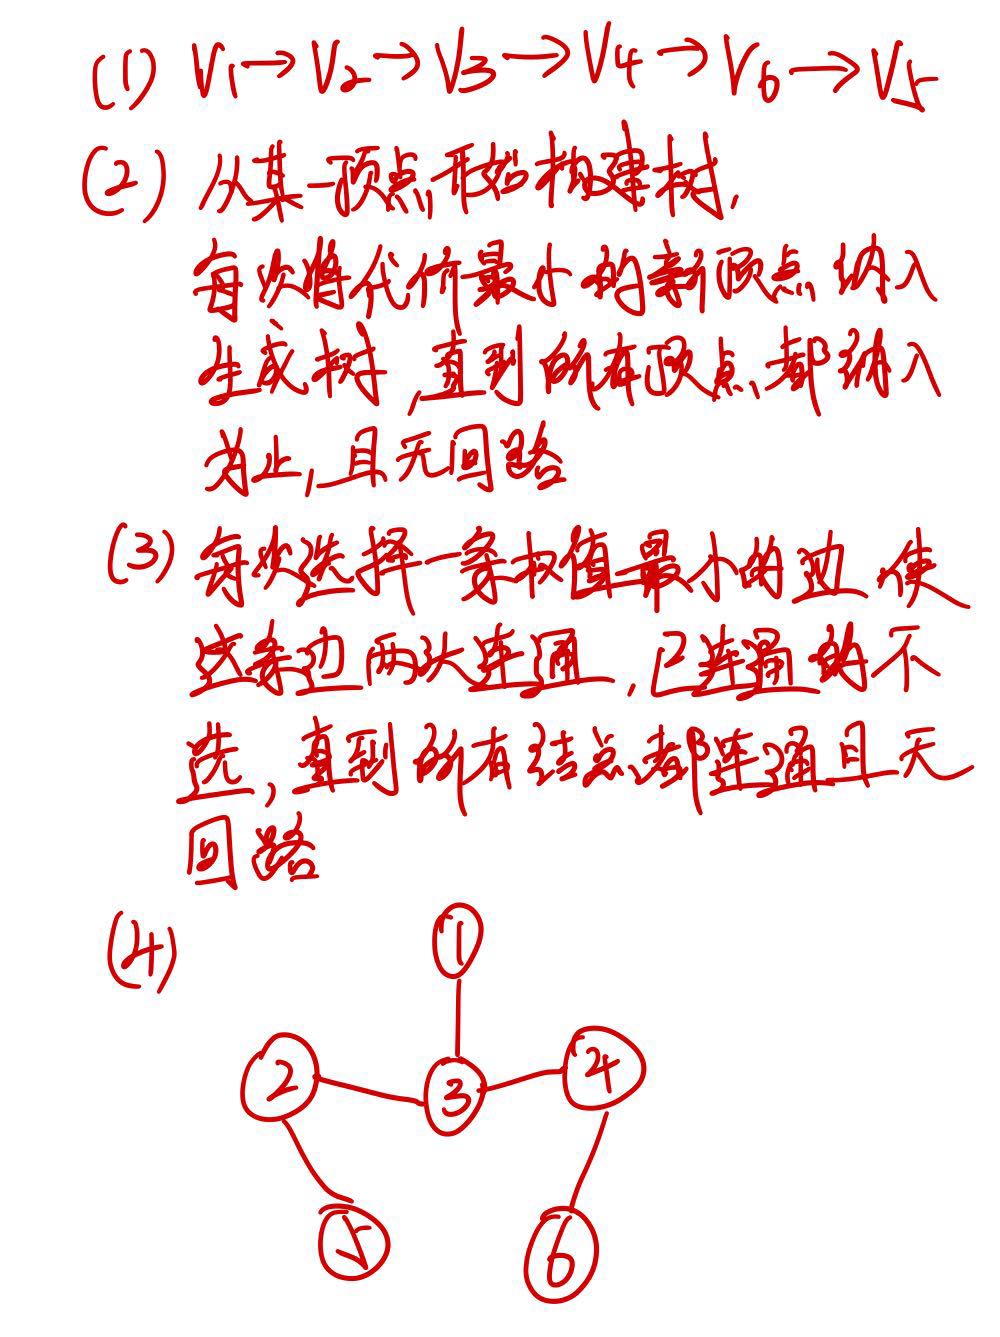 (1) V1→V2→V3→V4→V6→V5
(2) 从某一顶点开始构建树,
每次将代价最小的新顶点纳入
生成树,直到所有顶点都纳入
为止,且无回路
(3) 每次选择一条权值最小的边,使
这条边两头连通,已连通的不
选,直到所有结点都连通且无
回路
(4)
1
2 3 4
5 6